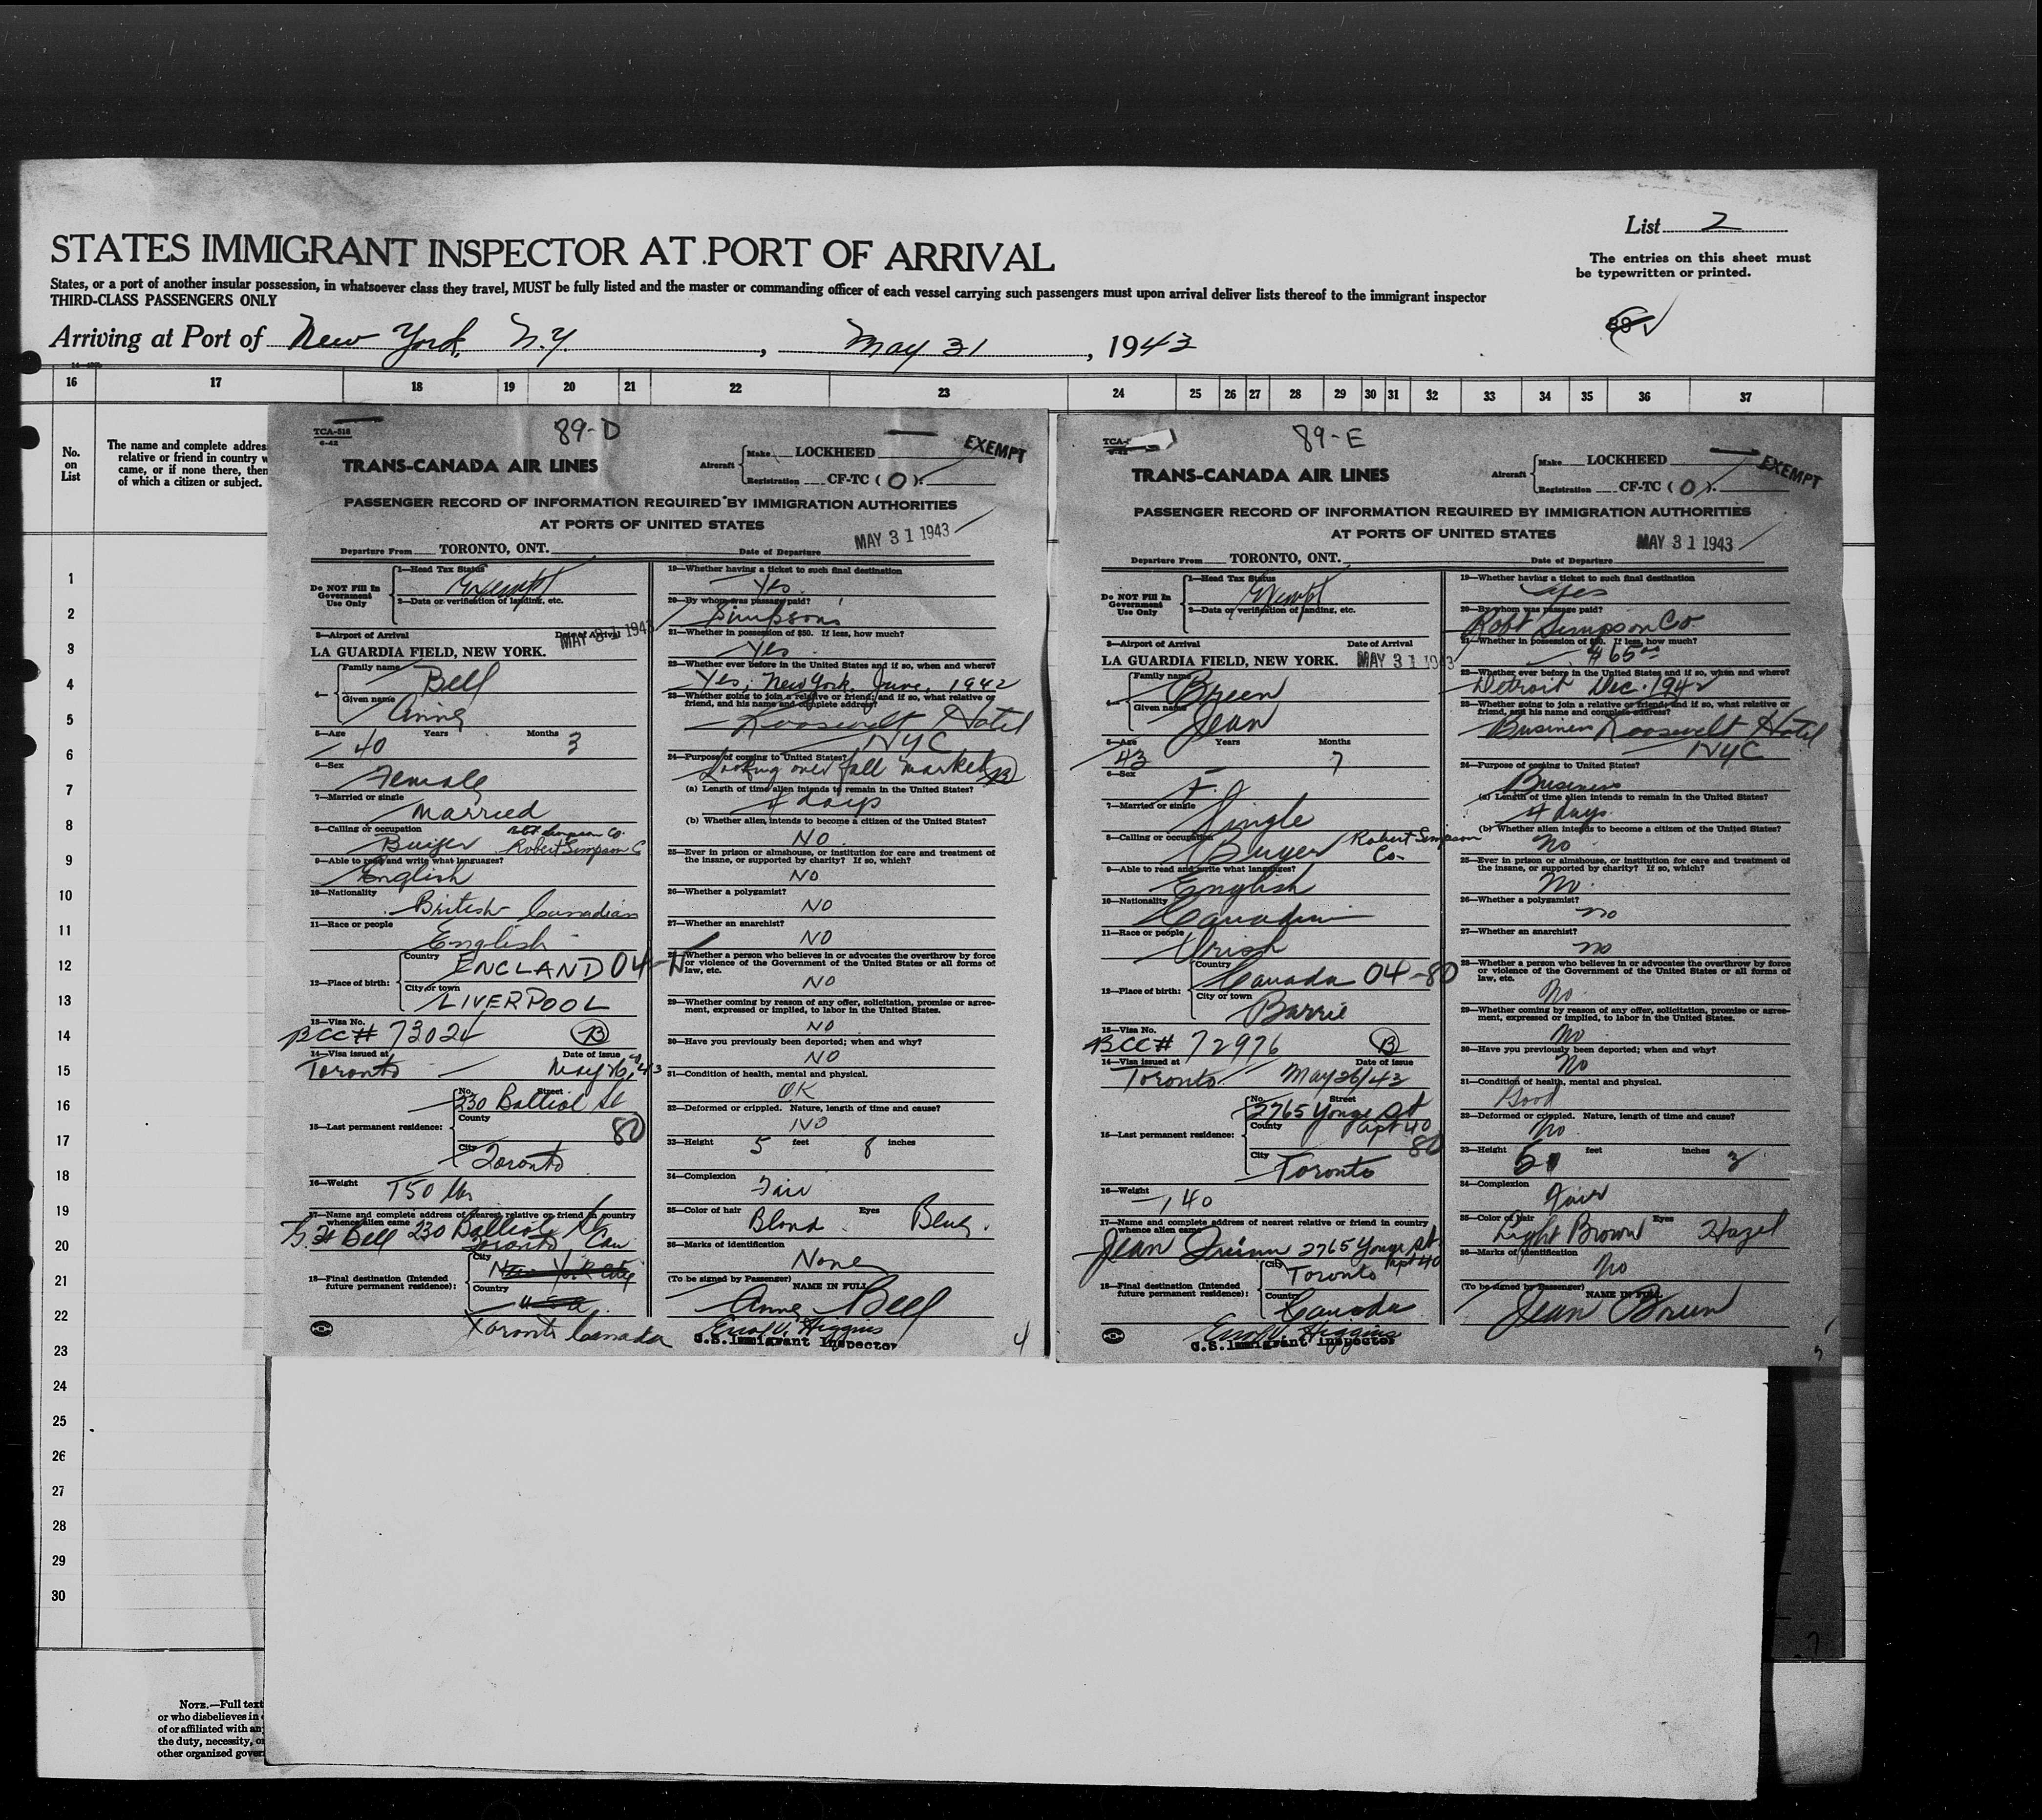 List 2
STATES IMMIGRANT INSPECTOR AT PORT OF ARRIVAL
The entries on this sheet must
be typewritten or printed.
States, or a port of another insular possession, in whatsoever class they travel, MUST be fully listed and the master or commanding officer of each vessel carrying such passengers must upon arrival deliver lists thereof to the immigrant inspector
THIRD-CLASS PASSENGERS ONLY
Arriving at Port of New York, N.Y. , May 31 , 1943
16 17 18 19 20 21 22 23 24 25 26 27 28 29 30 31 32 33 34 35 36 37
No.
on
List
The name and complete addres
relative or friend in country w
came, or if none there, then
of which a citizen or subject.
1
2
3
4
5
6
7
8
9
10
11
12
13
14
15
16
17
18
19
20
21
22
23
24
25
26
27
28
29
30
NOTE.—Full text
or who disbelieves in
of or affiliated with an
the duty, necessity, o
other organized gover
TCA-518
6-42
89-D
EXEMPT
TRANS-CANADA AIR LINES
Aircraft Make LOCKHEED
Registration CF-TC (O).
PASSENGER RECORD OF INFORMATION REQUIRED BY IMMIGRATION AUTHORITIES
AT PORTS OF UNITED STATES
MAY 31 1943
Departure From TORONTO, ONT. Date of Departure
Do NOT Fill In
Government
Use Only
1—Head Tax Status
Exempt
2—Data or verification of landing, etc.
3—Airport of Arrival Date of Arrival
LA GUARDIA FIELD, NEW YORK. MAY 31 1943
4— Family name Bell
Given name Anne
5—Age 40 Years Months 3
6—Sex
Female
7—Married or single
Married
8—Calling or occupation
Buyer Robert Simpson C
9—Able to read and write what languages?
English
10—Nationality
British Canadian
11—Race or people
English
12—Place of birth: Country ENGLAND 04-
City or town
LIVERPOOL
13—Visa No.
BCC# 73024 B
14—Visa issued at Date of issue
Toronto May 26, 43
15—Last permanent residence: No. Street
230 Balliol St
County 80
City Toronto
16—Weight
150 lbs
17—Name and complete address of nearest relative or friend in country
whence alien came
Bell 230 Balliol St
Toronto Can
18—Final destination (Intended
future permanent residence):
City New York City
Country U.S.A.
Toronto Canada
19—Whether having a ticket to such final destination
Yes
20—By whom was passage paid?
Simpsons
21—Whether in possession of $50. If less, how much?
Yes
22—Whether ever before in the United States and if so, when and where?
Yes, New York. June, 1942
23—Whether going to join a relative or friend; and if so, what relative or
friend, and his name and complete address?
Roosevelt Hotel
NYC
24—Purpose of coming to United States?
Looking over fall market B
(a) Length of time alien intends to remain in the United States?
4 days
(b) Whether alien intends to become a citizen of the United States?
NO
25—Ever in prison or almshouse, or institution for care and treatment of
the insane, or supported by charity? If so, which?
NO
26—Whether a polygamist?
NO
27—Whether an anarchist?
NO
28—Whether a person who believes in or advocates the overthrow by force
or violence of the Government of the United States or all forms of
law, etc.
NO
29—Whether coming by reason of any offer, solicitation, promise or agree-
ment, expressed or implied, to labor in the United States.
NO
30—Have you previously been deported; when and why?
NO
31—Condition of health, mental and physical.
OK
32—Deformed or crippled. Nature, length of time and cause?
NO
33—Height 5 feet 8 inches
34—Complexion
Fair
35—Color of hair Eyes
Blond Blue.
36—Marks of identification
None
(To be signed by Passenger) NAME IN FULL
Anne Bell
Higgins
U.S. Immigrant Inspector
4
89-E
EXEMPT
TRANS-CANADA AIR LINES
Aircraft Make LOCKHEED
Registration CF-TC (O).
PASSENGER RECORD OF INFORMATION REQUIRED BY IMMIGRATION AUTHORITIES
AT PORTS OF UNITED STATES
MAY 31 1943
Departure From TORONTO, ONT. Date of Departure
Do NOT Fill In
Government
Use Only
1—Head Tax Status
Exempt
2—Data or verification of landing, etc.
3—Airport of Arrival Date of Arrival
LA GUARDIA FIELD, NEW YORK. MAY 31 1943
4— Family name Breen
Given name Jean
5—Age 43 Years Months 7
6—Sex
F.
7—Married or single
Single
8—Calling or occupation
Buyer Robert Simpson
Co.
9—Able to read and write what languages?
English
10—Nationality
Canadian
11—Race or people
Irish
12—Place of birth: Country Canada 04-80
City or town
Barrie
13—Visa No.
BCC# 72976 B
14—Visa issued at Date of issue
Toronto May 26/43
15—Last permanent residence: No. Street
2765 Yonge St
County Apt 40
80
City Toronto
16—Weight
140
17—Name and complete address of nearest relative or friend in country
whence alien came
Jean Quinn 2765 Yonge St
Apt 40
18—Final destination (Intended
future permanent residence):
City Toronto
Country Canada
Higgins
U.S. Immigrant Inspector
19—Whether having a ticket to such final destination
Yes
20—By whom was passage paid?
Robt Simpson Co
21—Whether in possession of $50. If less, how much?
$65.00
22—Whether ever before in the United States and if so, when and where?
Detroit Dec. 1942
23—Whether going to join a relative or friend; and if so, what relative or
friend, and his name and complete address?
Business Roosevelt Hotel
NYC
24—Purpose of coming to United States?
Business
(a) Length of time alien intends to remain in the United States?
4 days
(b) Whether alien intends to become a citizen of the United States?
No
25—Ever in prison or almshouse, or institution for care and treatment of
the insane, or supported by charity? If so, which?
No.
26—Whether a polygamist?
no
27—Whether an anarchist?
no
28—Whether a person who believes in or advocates the overthrow by force
or violence of the Government of the United States or all forms of
law, etc.
No.
29—Whether coming by reason of any offer, solicitation, promise or agree-
ment, expressed or implied, to labor in the United States.
No
30—Have you previously been deported; when and why?
No
31—Condition of health, mental and physical.
Good
32—Deformed or crippled. Nature, length of time and cause?
No
33—Height 5 feet inches 3
34—Complexion
Fair
35—Color of hair Eyes
Light Brown Hazel
36—Marks of identification
No
(To be signed by Passenger) NAME IN FULL
Jean Breen